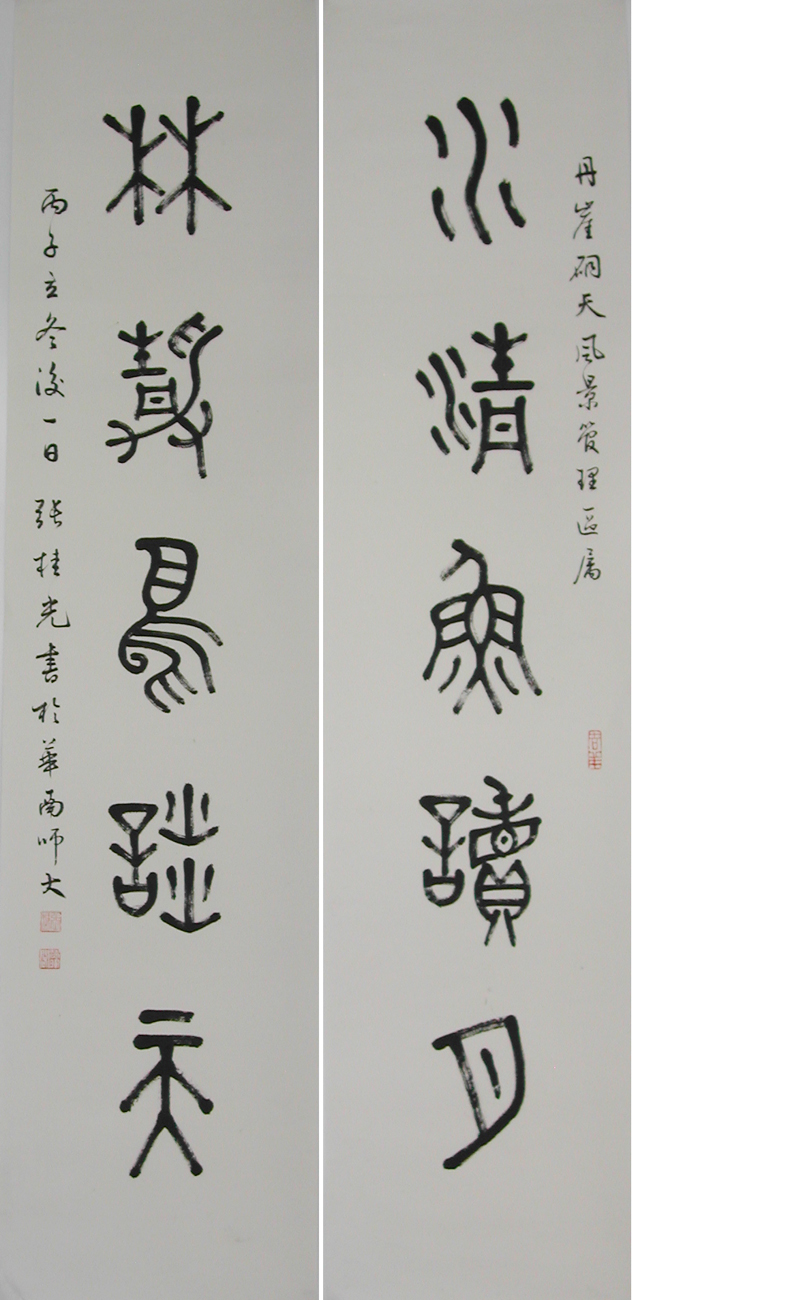 丹崖硐天風景管理區属
水清魚讀月
林靜鳥談天
丙子立冬後一日 張桂光書於華南師大